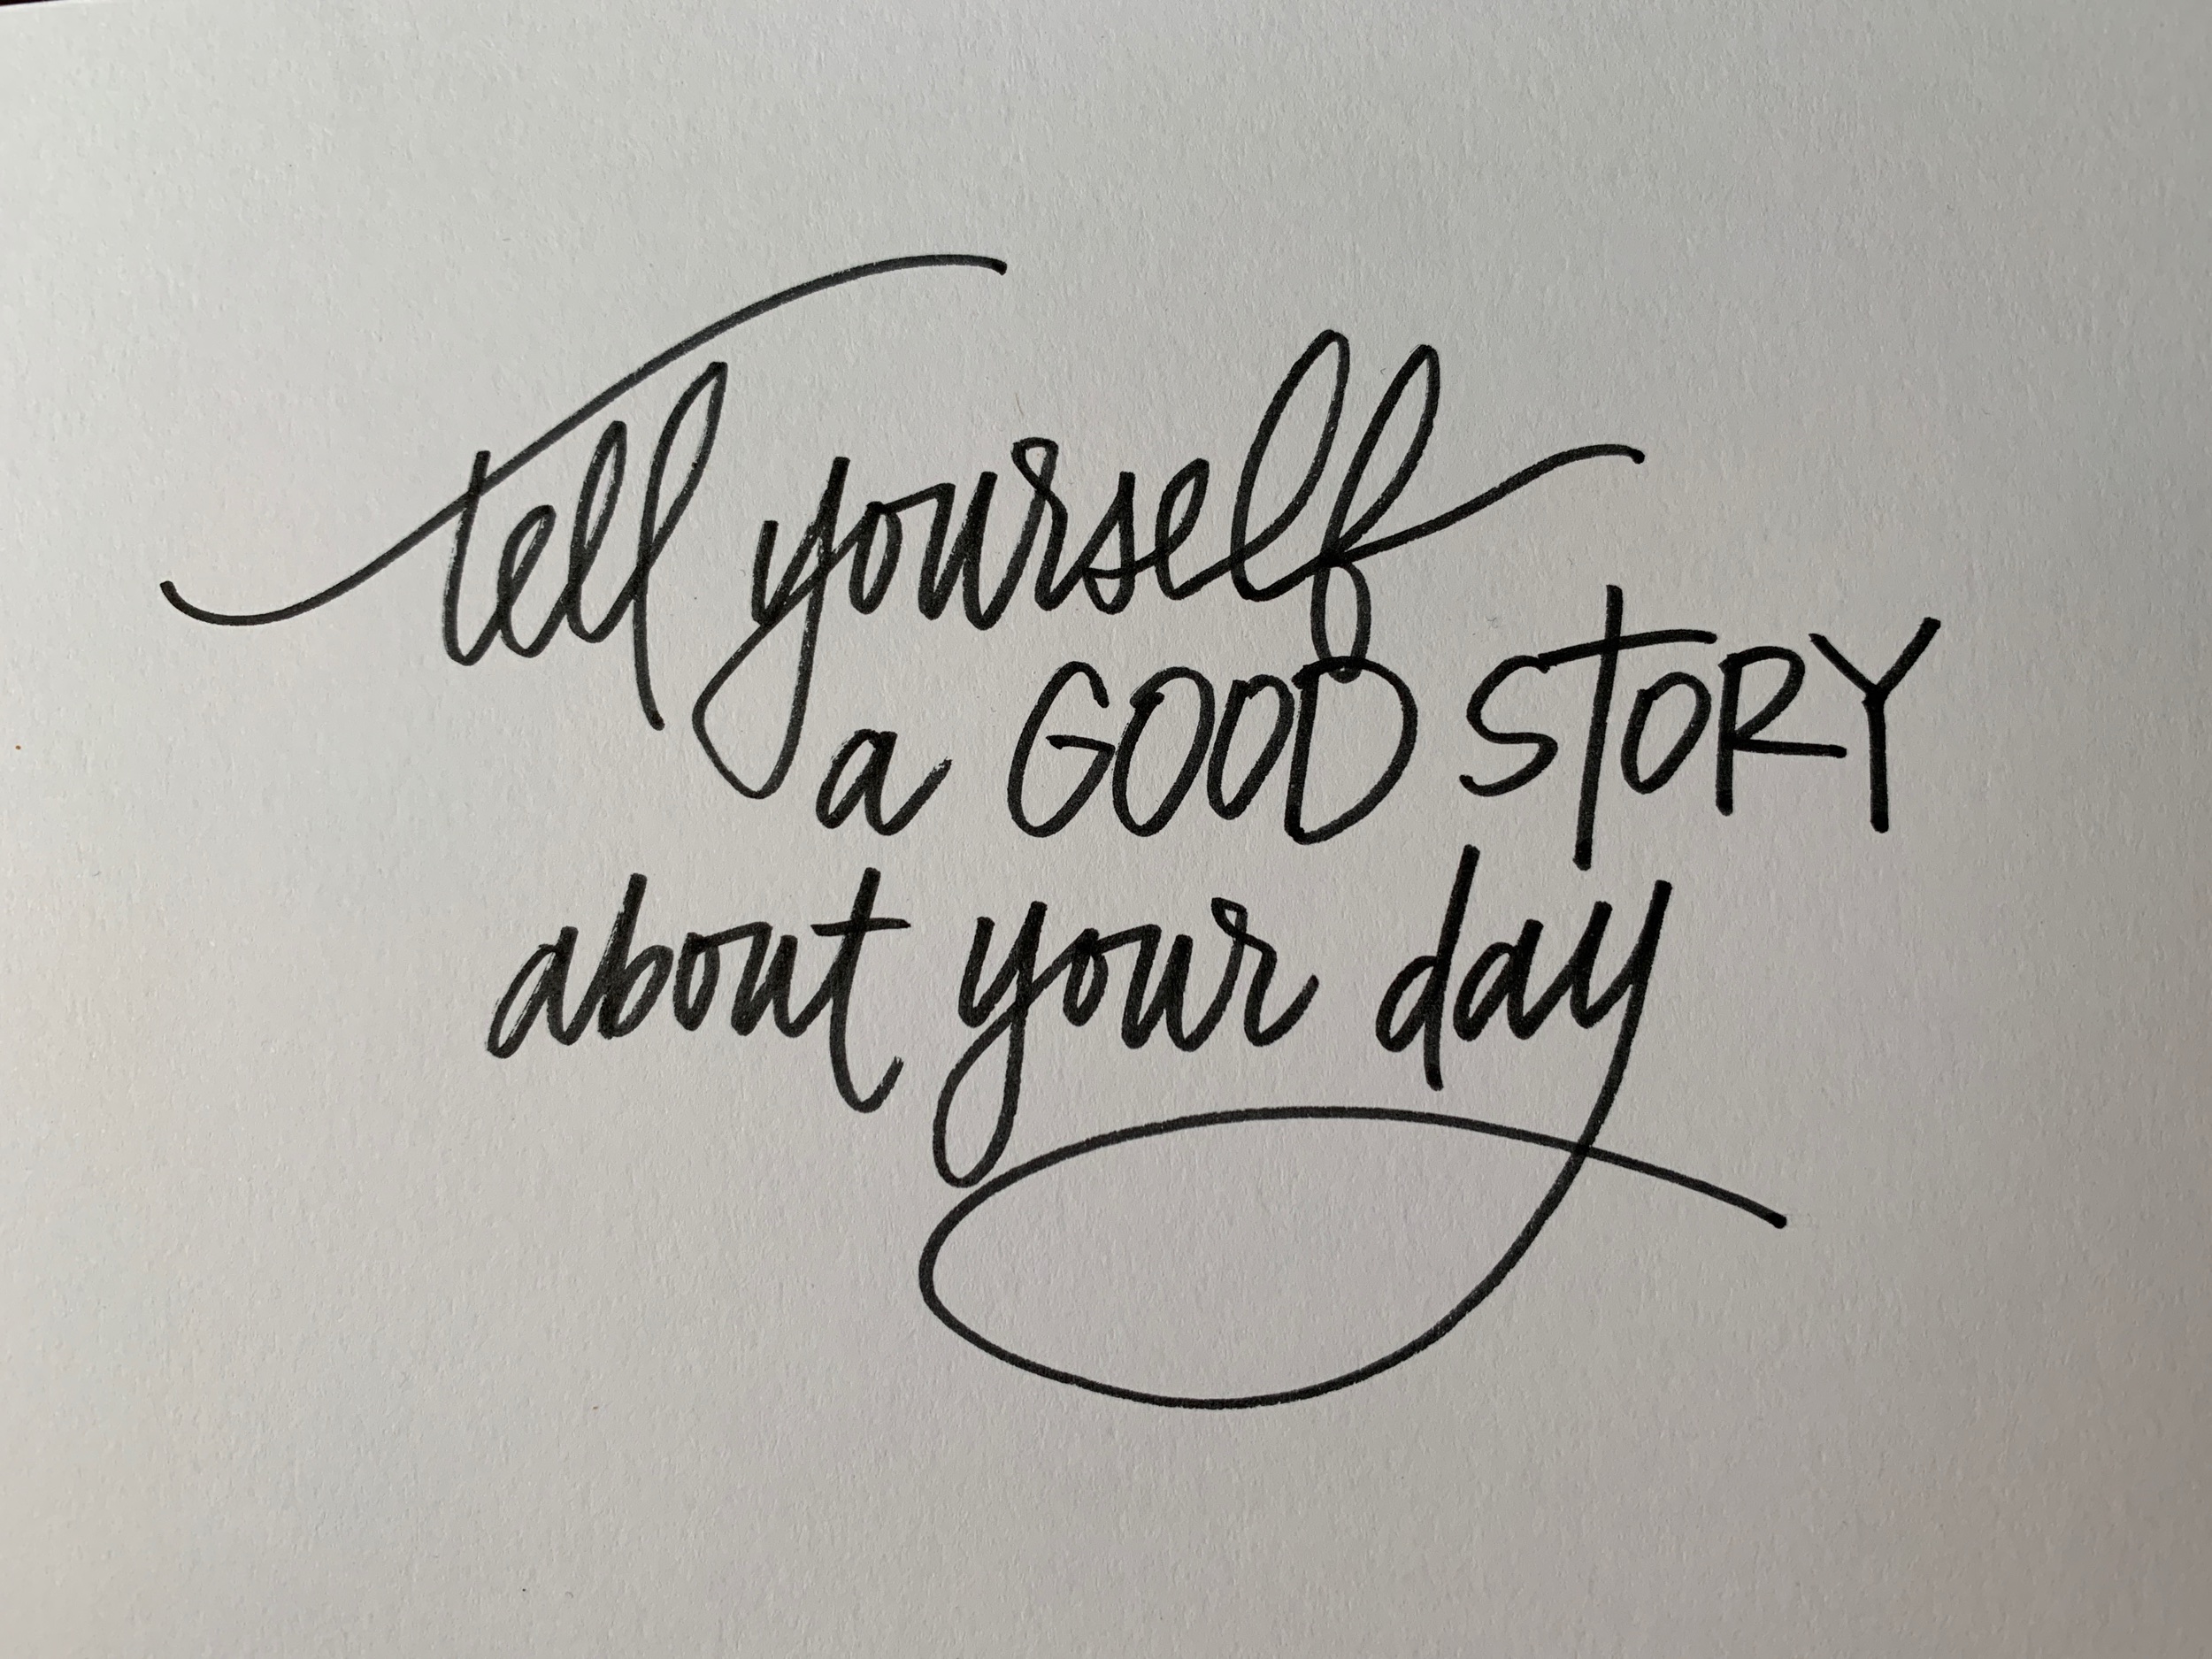 tell yourself
a GOOD STORY
about your day